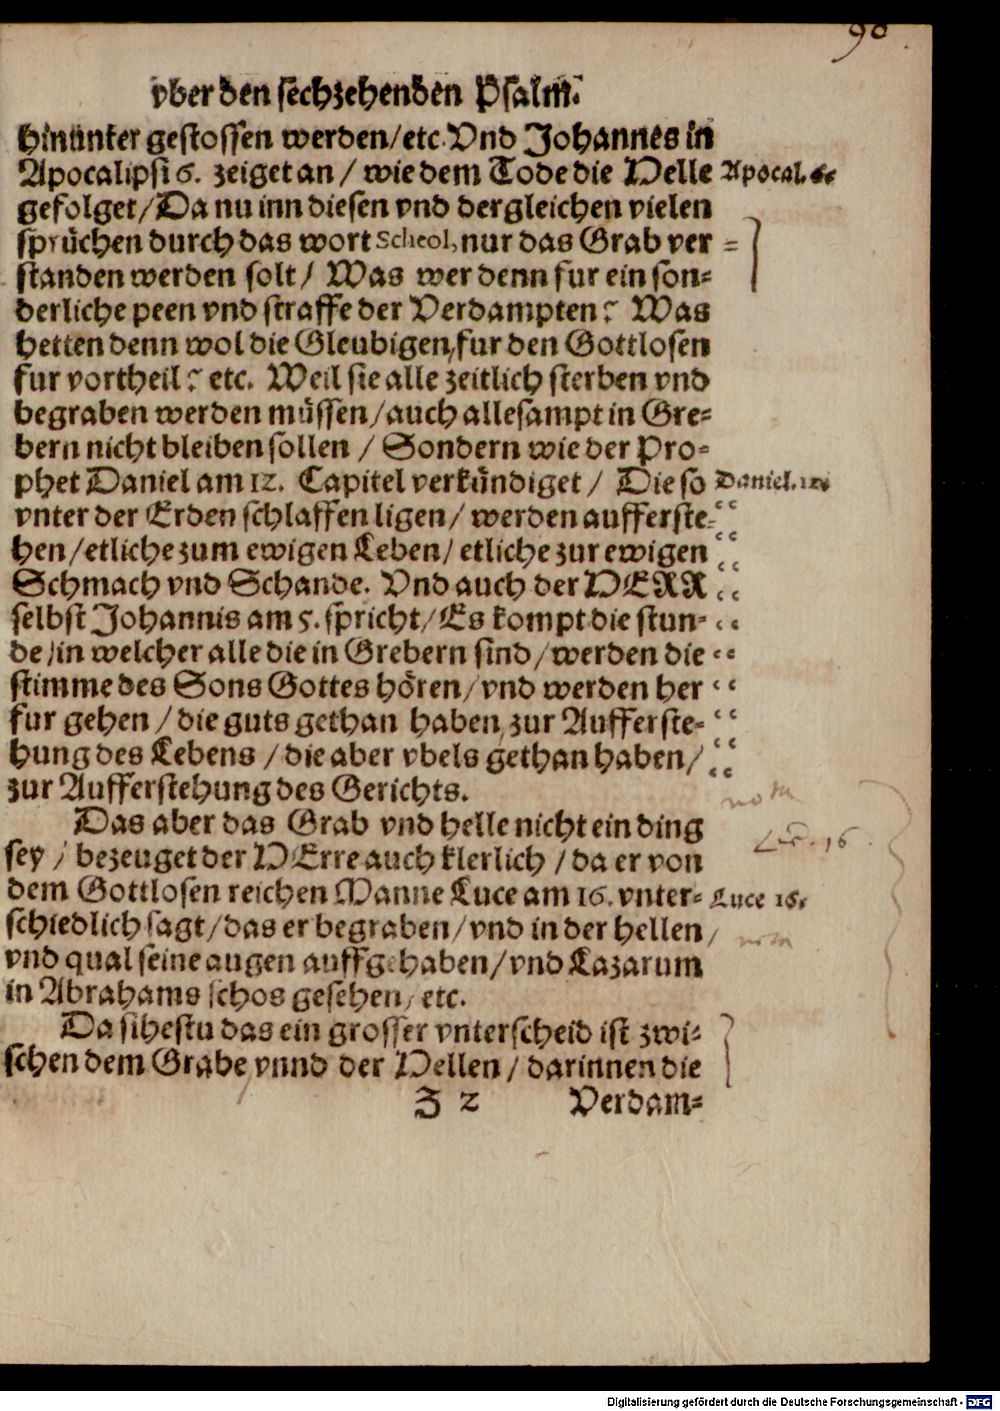 90
vber den sechzehenden Psalm.
hinunter gestossen werden/etc. Vnd Johannes in
Apocalipsi 6. zeiget an / wie dem Tode die Helle Apocal. 6.
gefolget/Da nu inn diesen vnd dergleichen vielen
sprüchen durch das wort Scheol, nur das Grab ver =
standen werden solt / Was wer denn fur ein son=
derliche peen vnd straffe der Verdampten? Was
hetten denn wol die Gleubigen/fur den Gottlosen
fur vortheil? etc. Weil sie alle zeitlich sterben vnd
begraben werden müssen/auch allesampt in Gre=
bern nicht bleiben sollen / Sondern wie der Pro=
phet Daniel am 12. Capitel verkündiget / Die so Daniel. 12.
vnter der Erden schlaffen ligen/ werden aufferste=
hen/etliche zum ewigen Leben/ etliche zur ewigen
Schmach vnd Schande. Vnd auch der HERR
selbst Johannis am 5. spricht/Es kompt die stun=
de/in welcher alle die in Grebern sind/werden die
stimme des Sons Gottes hören/vnd werden her
fur gehen /die guts gethan haben/zur Aufferste=
hung des Lebens /die aber vbels gethan haben/
zur Aufferstehung des Gerichts.
Das aber das Grab vnd helle nicht ein ding
Luc. 16.
sey / bezeuget der HErre auch klerlich /da er von
dem Gottlosen reichen Manne Luce am 16. vnter= Luce 16.
schiedlich sagt/das er begraben/vnd in der hellen/
vnd qual seine augen auffgehaben/vnd Lazarum
in Abrahams schos gesehen/ etc.
Da sihestu das ein grosser vnterscheid ist zwi=
schen dem Grabe/vnnd der Hellen / darinnen die
Z 2 Verdam=
Digitalisierung gefördert durch die Deutsche Forschungsgemeinschaft - DFG